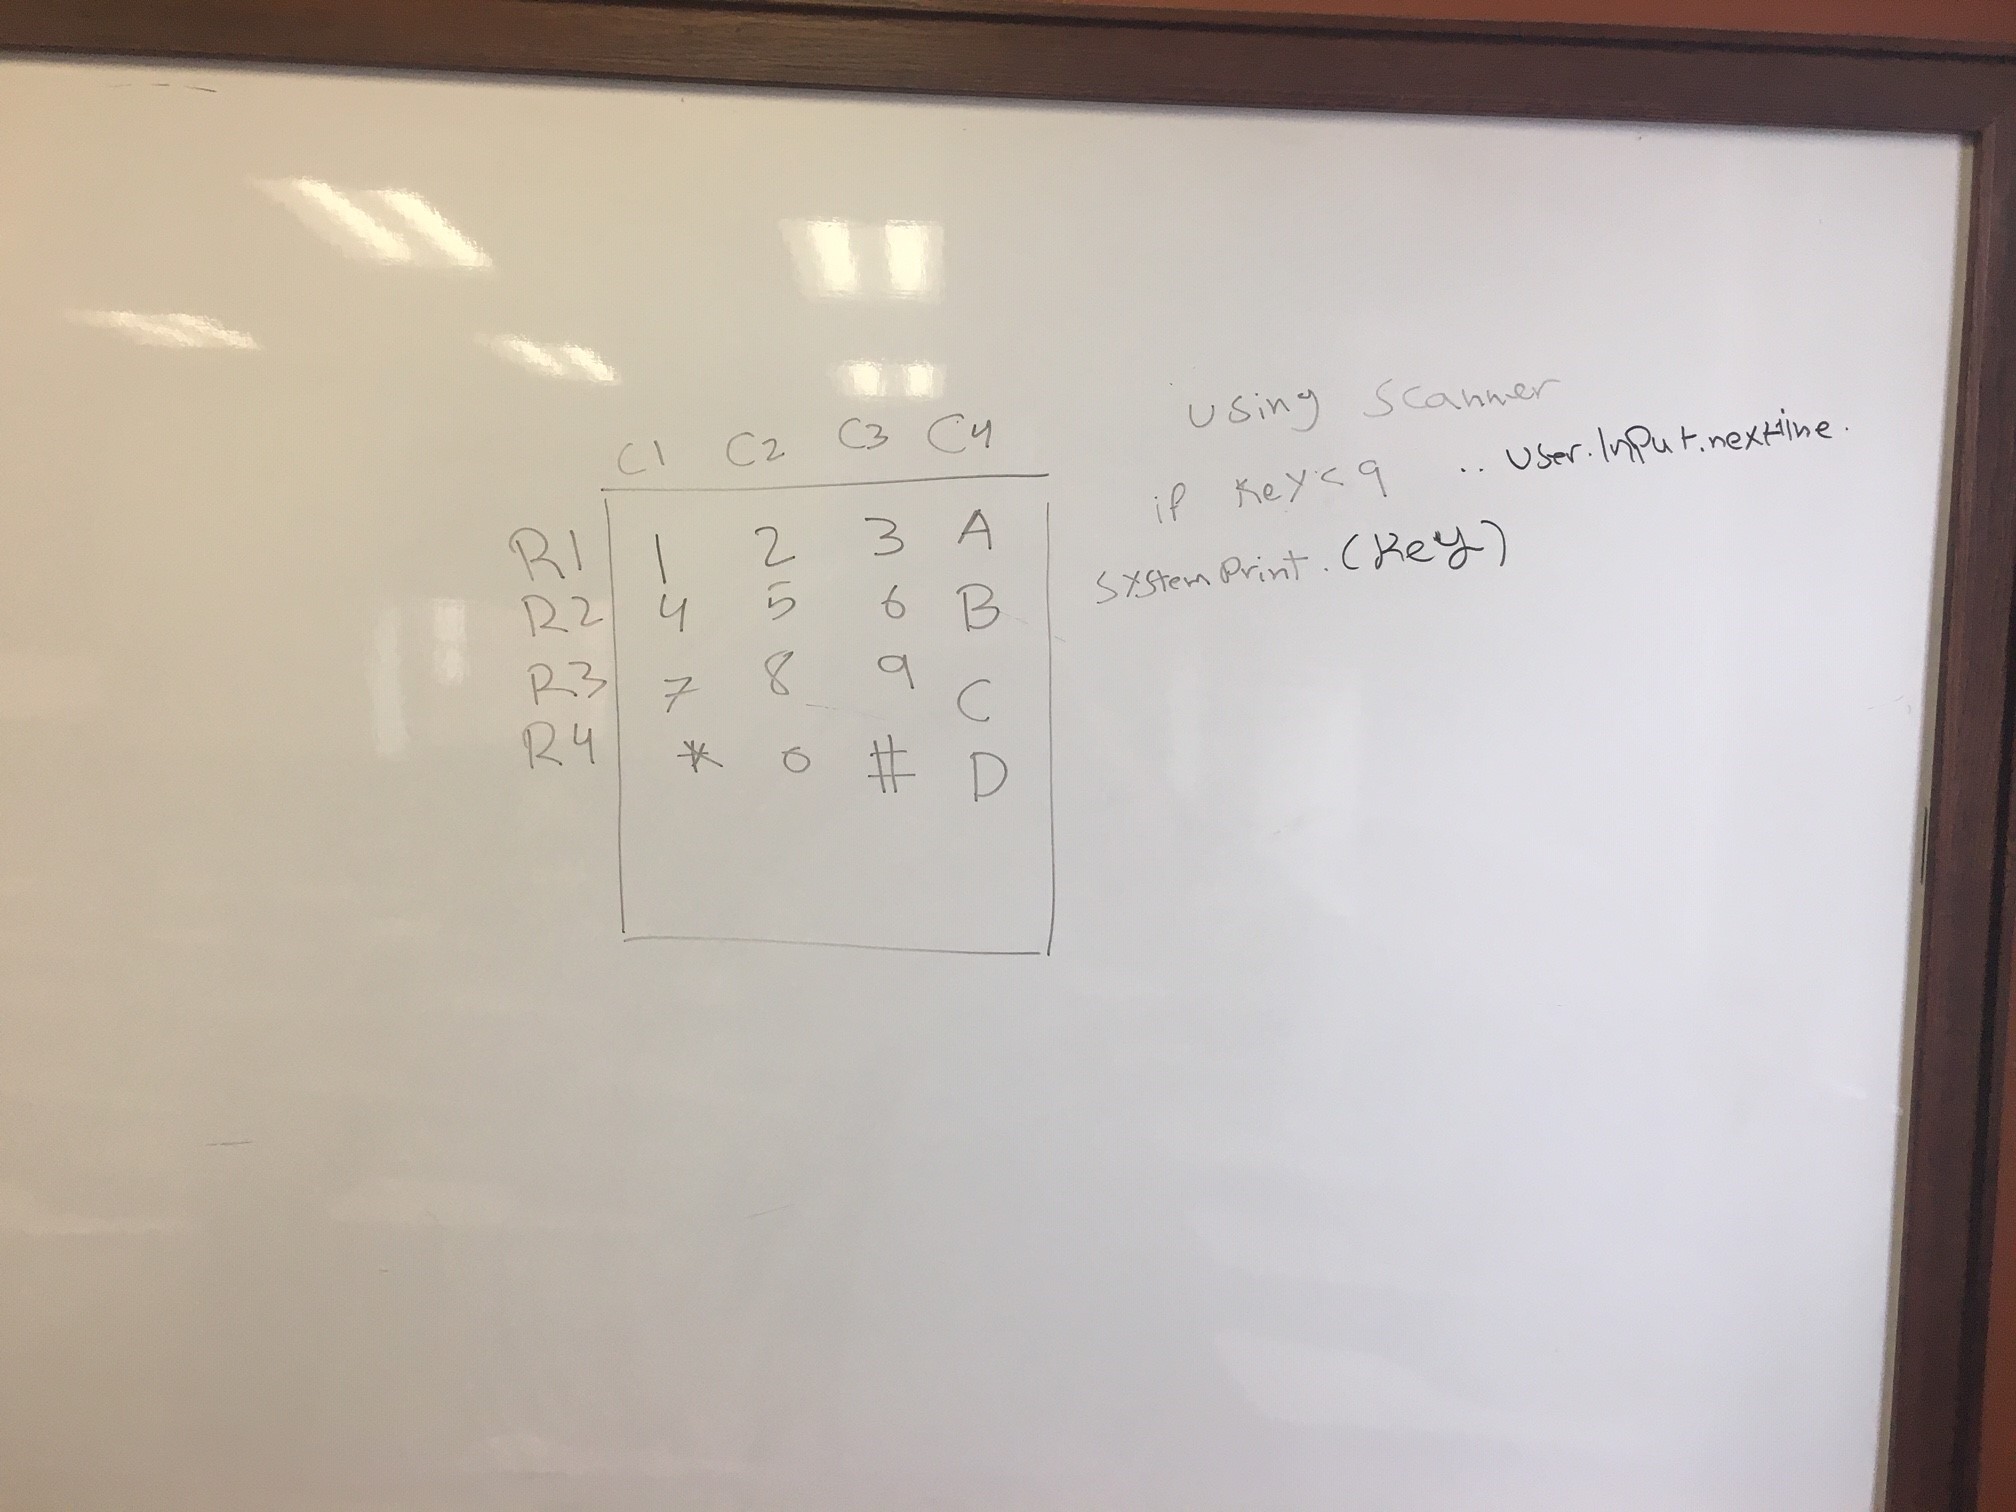 C1 C2 C3 C4
R1 1 2 3 A
R2 4 5 6 B
R3 7 8 9 C
R4 * 0 # D
using scanner
if Key<9 .. User.InPut.nextline.
SYStem Print.(Key)